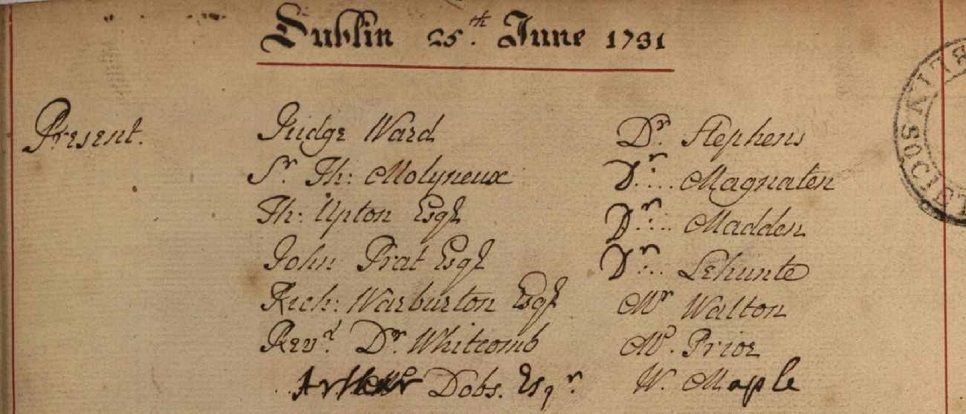 Dublin 25th June 1731
Present. Judge Ward Dr Stephens
Sr Th: Molyneux Dr Magnaten
Th: Upton Esqr Dr Madden
John Prat Esqr Dr Lehunte
Rich: Warburton Esqr Mr Walton
Revd Dr Whitcomb Mr Prior
Arthur Dobs. Esqr W. Maple